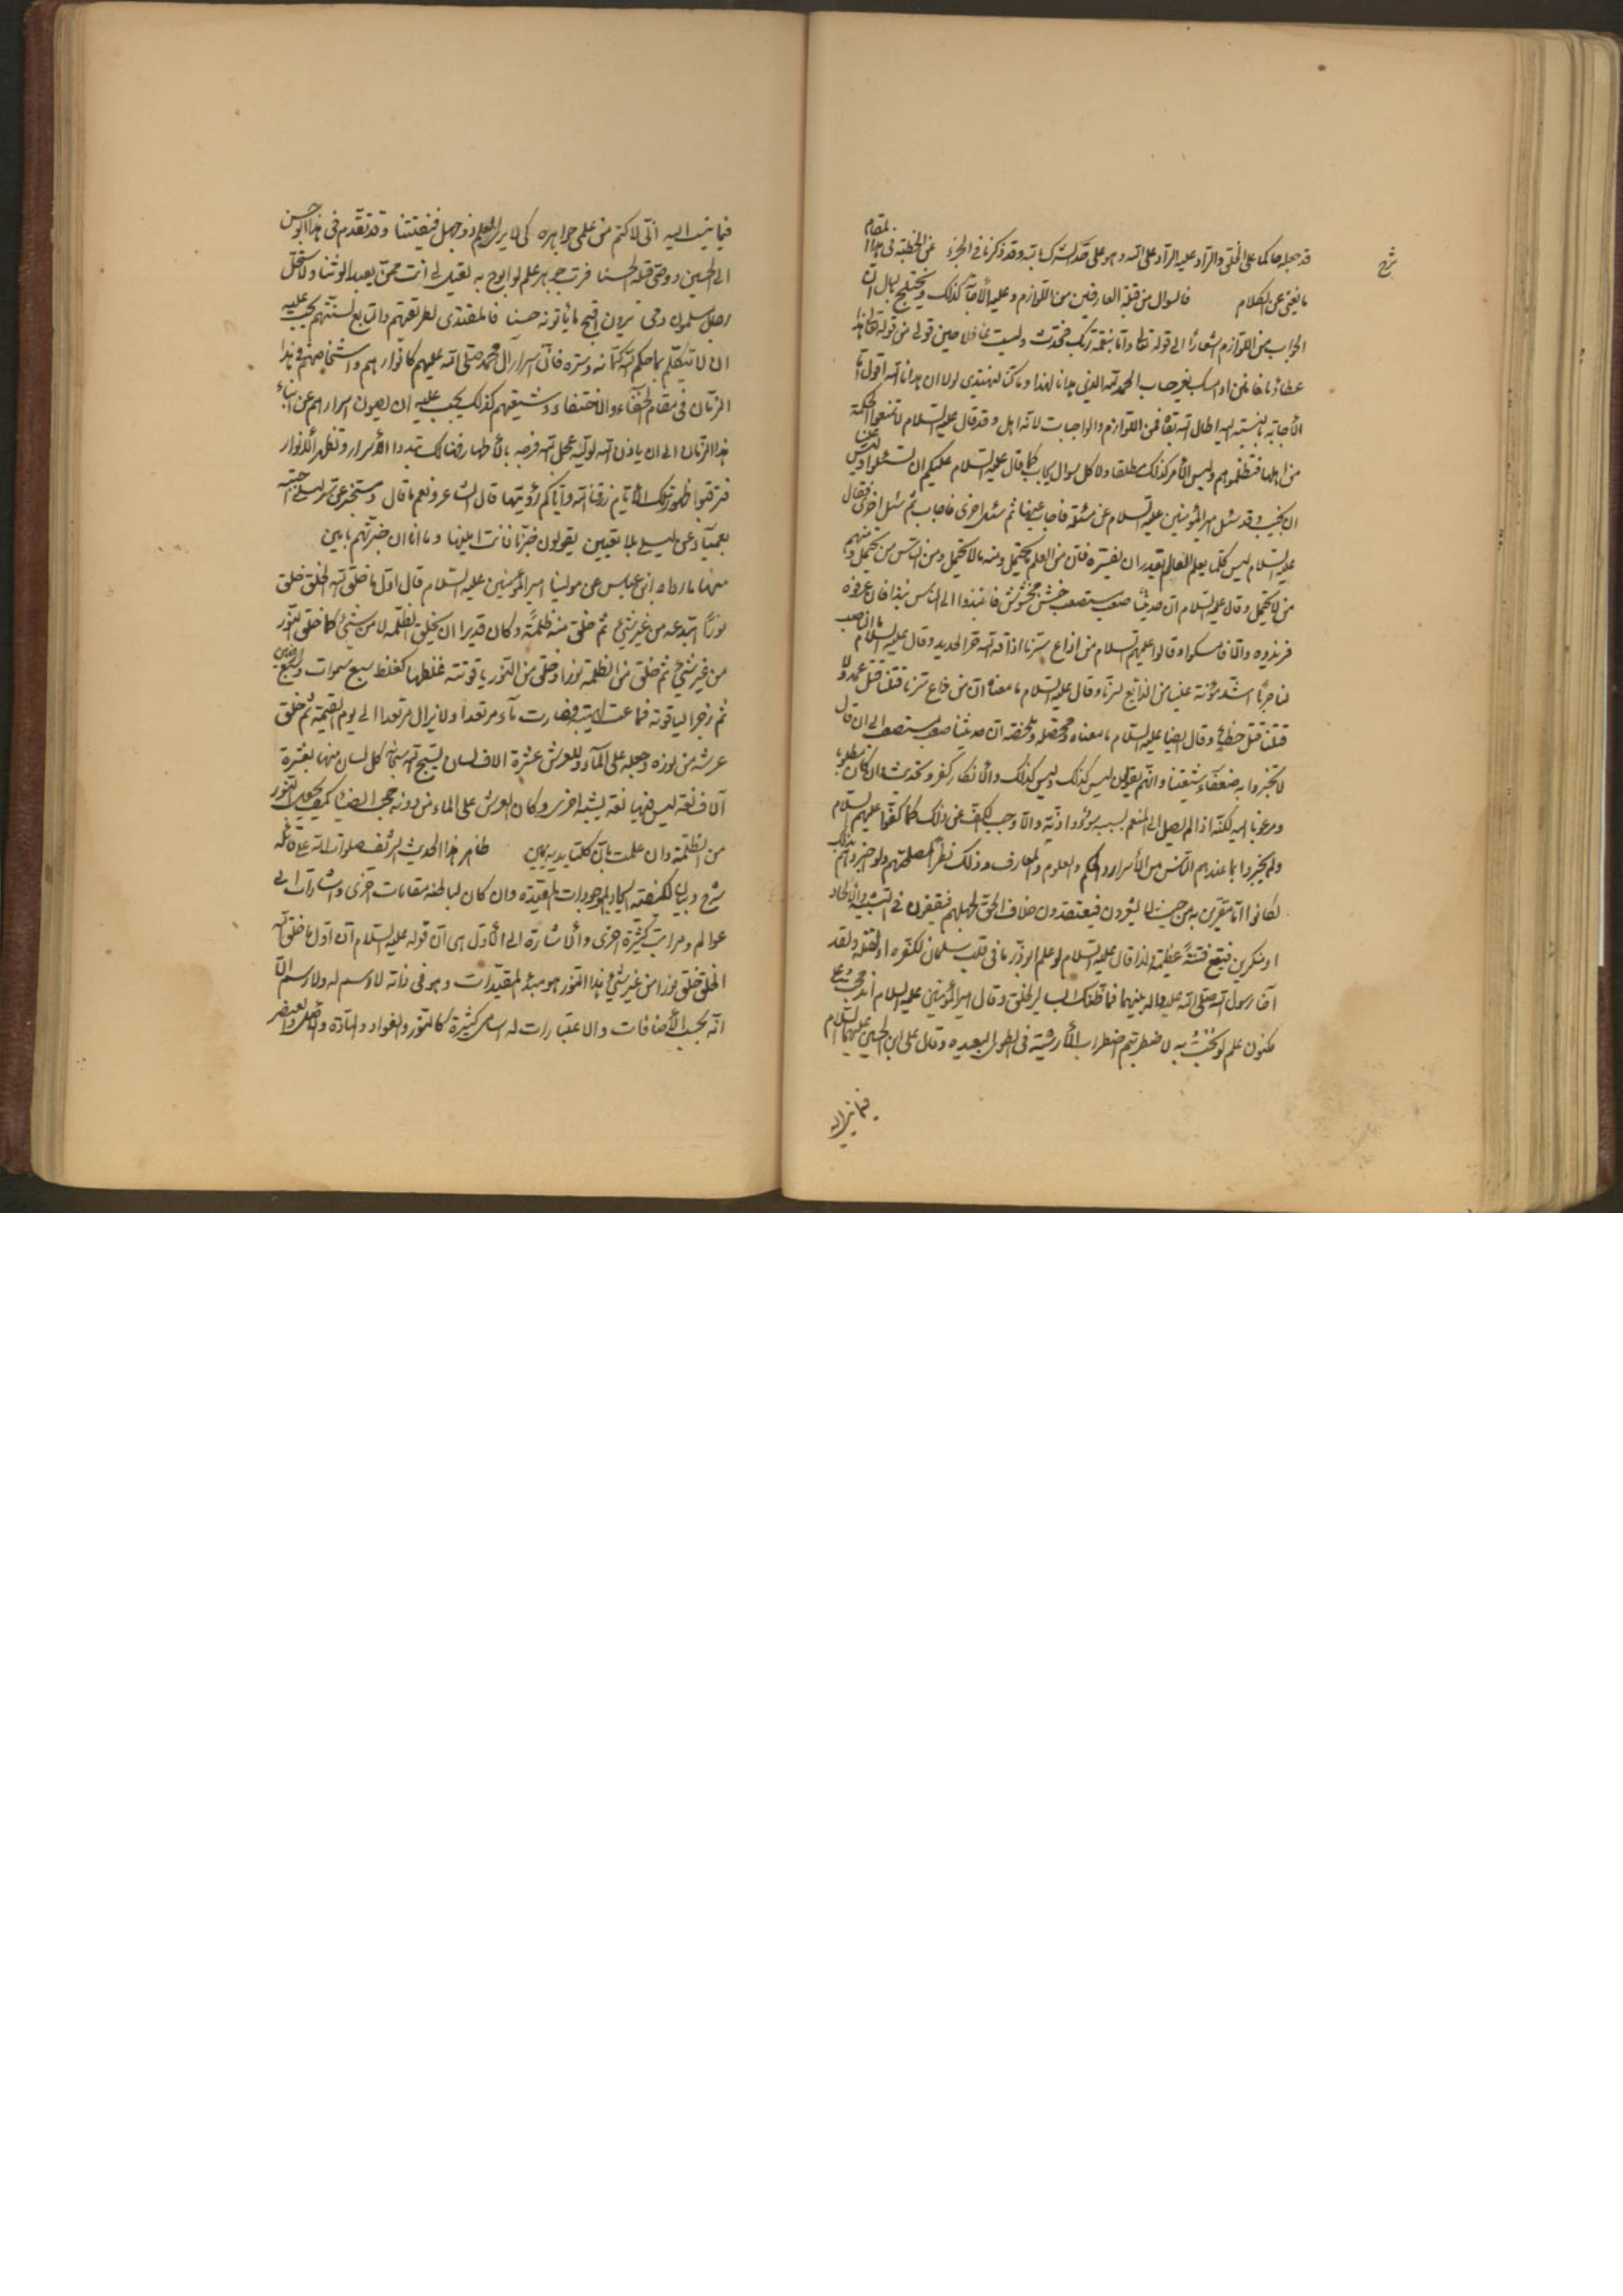 شرح
قد جعله حاكما على الخلق والراد عليه الراد على الله وهو على حد الشرك بالله وقد ذكرنا في الجزء من الخطبة في هذا المقام
ما يغني عن الكلام فالسؤال من قبل العارفين من اللوازم وعليه الأجابة كذلك ويختلج ببال ان
الجواب من اللوازم اشعارا الى قوله تعالى واما بنعمة ربك فحدث ولست غافلا حين قولي من قوله تعالى هذا
عطاؤنا فامنن او امسك بغير حساب الحمد لله الذي هدانا لهذا وما كنا لنهتدي لولا ان هدانا الله اقول اما
الأجابة بالنسبة اليه اطال الله بقاه فمن اللوازم والواجبات لانه اهل وقد قال عليه السلام لا تمنعوا الحكمة
من اهلها فتظلموهم وليس الأمر كذلك مطلقا ولا كل سؤال يجاب كما قال عليه السلام عليكم ان تسئلوا وليس علينا
ان نجيب وقد سئل امير المؤمنين عليه السلام عن مسئلة فاجاب عنها ثم سئل اخرى فاجاب ثم سئل اخرى فقال
عليه السلام ليس كلما يعلم العالم يقدر ان يفسره فان من العلم ما يحتمل ومنه ما لا يحتمل ومن الناس من يحتمل ومنهم
من لا يحتمل وقال عليه السلام ان حديثنا صعب مستصعب خشن مخشوش فانبذوا الى الناس نبذا فان عرفوه
فزيدوه والا فامسكوا وقالوا عليهم السلام من اذاع سرنا اذاقه الله حر الحديد وقال عليه السلام ما الناصب
لنا حربا اشد مؤنة علينا من المذيع لسرنا وقال عليه السلام ما معناه ان من اذاع سرنا قتلنا قتل عمد ولا
قتلنا قتل خطاء وقال ايضا عليه السلام ما معناه ومحصله وملخصه ان حديثنا صعب مستصعب الى ان قال
لا تخبروا به ضعفاء شيعتنا وانهم يقولون ليس كذلك وليس كذلك والأنكار كفر وتحديث وان كان مطلوبا
ومرغوبا اليه لكنه اذا لم يصل الى المنعم بسبب سوء واذية والا وجب الكف عن ذلك كما كفوا عليهم السلام
ولم يخبروا بما عندهم الناس من الأسرار والحكم والعلوم والمعارف وذلك نظرا لمصلحتهم ولو خبروهم بذلك
لكانوا اما مقرين به من حيث لا يشعرون فيعتقدون خلاف الحق لجهلهم فيقفون في التشبيه والالحاد
او منكرين فيقع فتنة عظيمة ولذا قال عليه السلام لو علم ابوذر ما في قلب سلمان لكفره او لقتله ولقد
آخا رسول الله صلى الله عليه واله بينهما فما ظنك بساير الخلق وقال امير المؤمنين عليه السلام اندمجت على
مكنون علم لو بحت به لاضطربتم اضطراب الأرشية في الطوى البعيدة وقال علي ابن الحسين عليهما السلام
فيما نسب اليه
فيما ينسب اليه اني لاكتم من علمي جواهره كي لا يرى العلم ذو جهل فيفتتنا وقد تقدم في هذا ابو حسن
الى الحسين ووصى قبله الحسنا فرب جوهر علم لو ابوح به لقيل لي انت ممن يعبد الوثنا ولاستحل
رجال مسلمون دمي يرون اقبح ما يأتونه حسنا فالمقتدي لطريقتهم والتابع لسنتهم يجب عليه
ان لا يتكلم بما حكم الله كتمانه وستره فان اسرار آل محمد صلى الله عليهم كانوارهم واشخاصهم في هذا
الزمان في مقام الخفاء والاختفاء وشيعتهم كذلك يجب عليه ان يصون اسرارهم عن ابناء
هذا الزمان الى ان يأذن الله لوليه عجل الله فرجه بالأظهار فهنالك تبدوا الأسرار وتظهر الأنوار
فترقبوا ظهور تلك الأيام رزقنا الله واياكم رؤيتها قال الشاعر ونعم ما قال ومستخبر عن سر ليلى اجبته
بعمياء عن ليلى بلا تعيين يقولون خبرنا فانت امينها وما انا ان خبرتهم بامين
منها ما رواه ابن عباس عن مولينا امير المؤمنين عليه السلام قال اول ما خلق الله الخلق خلق
نورا ابتدعه من غير شيئ ثم خلق منه ظلمة وكان قديرا ان يخلق الظلمة لا من شيئ كما خلق النور
من غير شيئ ثم خلق من الظلمة نورا وخلق من النور ياقوتة غلظها كغلظ سبع سموات وسبع ارضين
ثم زجر الياقوتة فماعت لهيبته فصارت ماء مرتعدا ولا يزال مرتعدا الى يوم القيمة ثم خلق
عرشه من نوره وجعله على الماء وللعرش عشرة الاف لسان يسبح الله سبحانه كل لسان منها بعشرة
آلاف لغة ليس فيها لغة يشبه اخرى وكان العرش على الماء من دونه حجب الضباب كيف يجعل النور
من الظلمة وان علمت بان كلتا يديه يمين ظاهر هذا الحديث الشريف صلوات الله على قائله
شرح وبيان لكيفية ايجاد الموجودات المقيدة وان كان لباطنه مقامات اخرى واشارات الى
عوالم ومراتب كثيرة اخرى والأشارة الى الأول هي ان قوله عليه السلام ان اول ما خلق الله
الخلق خلق نورا من غير شيئ هذا النور هو مبدء المقيدات وهو في ذاته لا اسم له ولا رسم الا
انه بحسب الأضافات والاعتبارات له اسامي كثيرة كالنور والفؤاد والمادة والأصل والعنصر